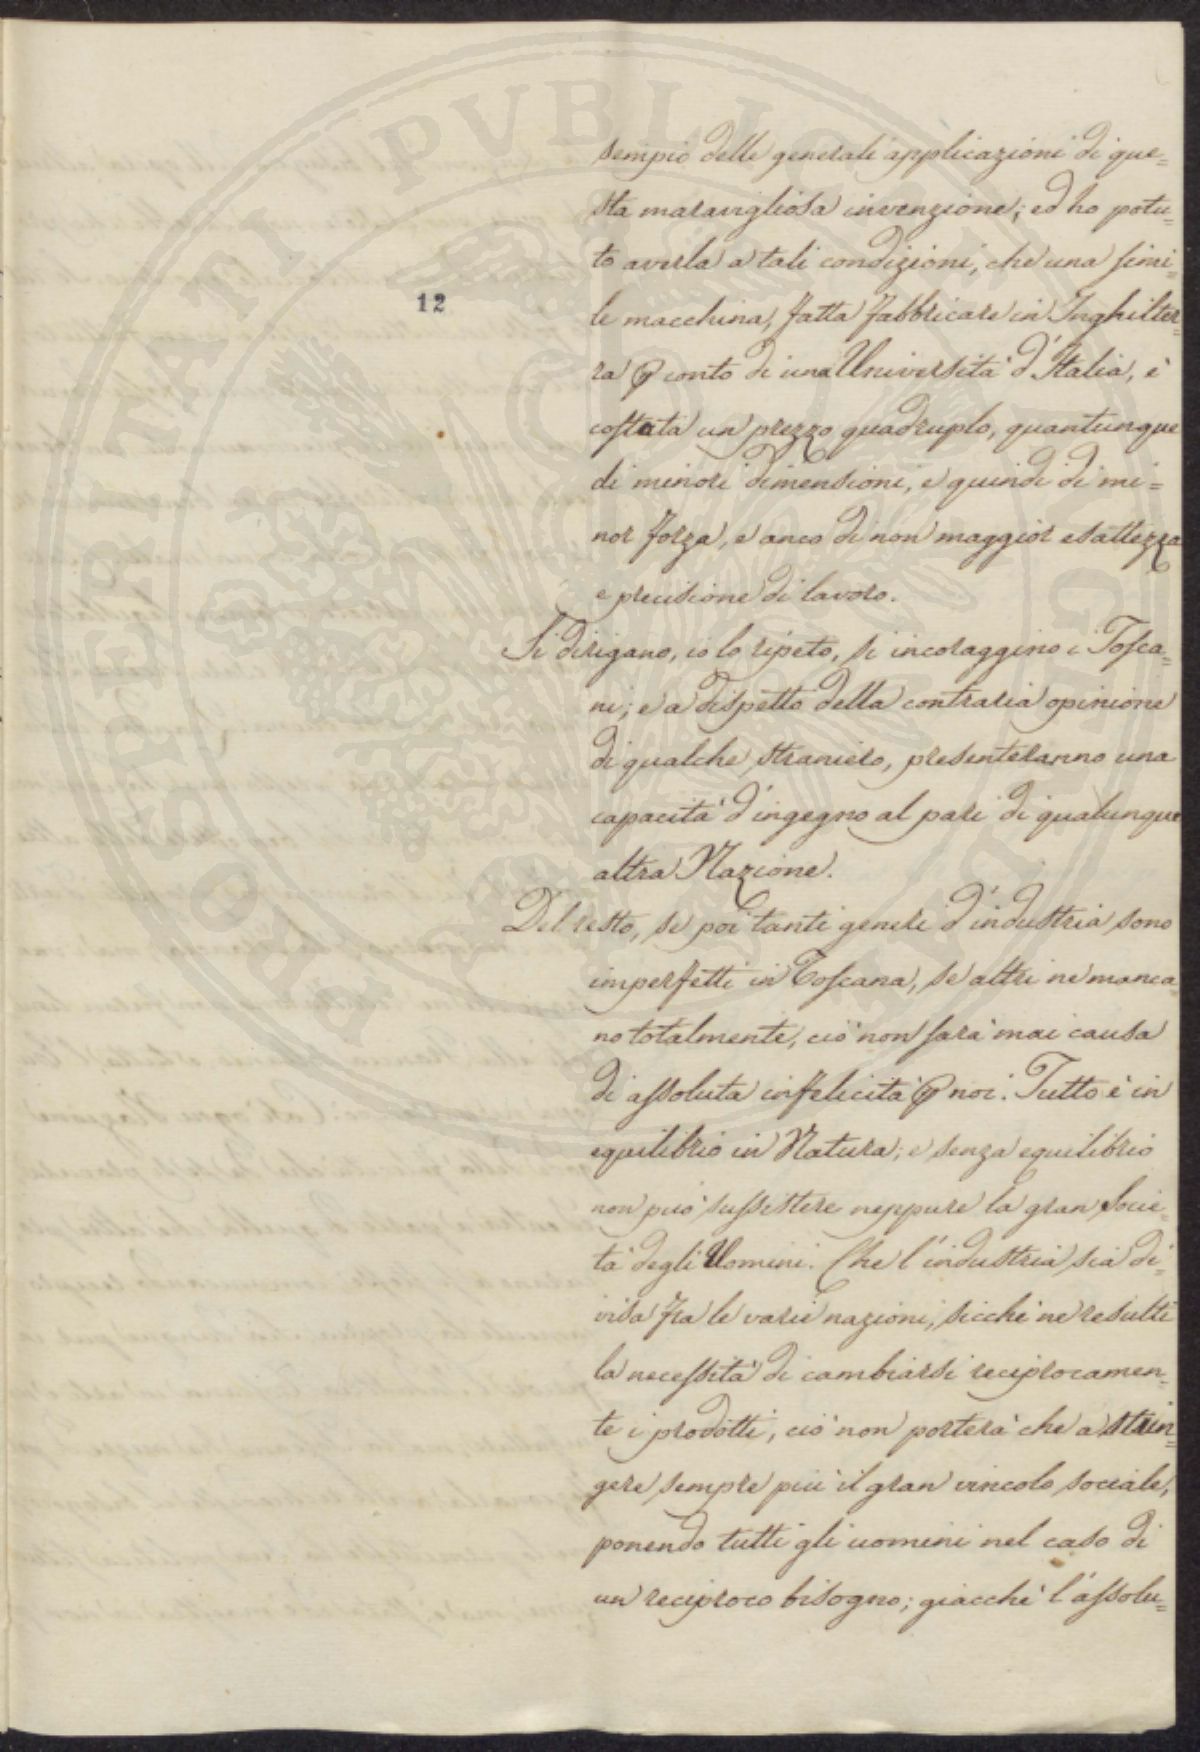 sempio delle generali applicazioni di que=
sta maravigliosa invenzione; ed ho potu=
to averla a tali condizioni, che una simi=
12
le macchina, fatta fabbricare in Inghilter=
ra ꝑ conto di una Università d'Italia, è
costata un prezzo quadruplo, quantunque
di minori dimensioni, e quindi di mi=
nor forza, e anco di non maggior esattezza
e precisione di lavoro.
Si dirigano, io lo ripeto, si incoraggino i Tosca=
ni; e a dispetto della contraria opinione
di qualche straniero, presenteranno una
capacità d'ingegno al pari di qualunque
altra Nazione.
Del resto, se poi tanti generi d'industria sono
imperfetti in Toscana, se altri ne manca
no totalmente, ciò non sarà mai causa
di assoluta infelicità ꝑ noi. Tutto è in
equilibrio in Natura; e senza equilibrio
non può sussistere neppure la gran Socie=
tà degli Uomini. Che l'industria sia di=
visa fra le varie nazioni, sicchè ne resulti
la necessità di cambiarsi reciprocamen=
te i prodotti, ciò non porterà che a strin=
gere sempre più il gran vincolo sociale,
ponendo tutti gli uomini nel caso di
un reciproco bisogno; giacchè l'assolu=
PUBLICAE
PROSPERITATI